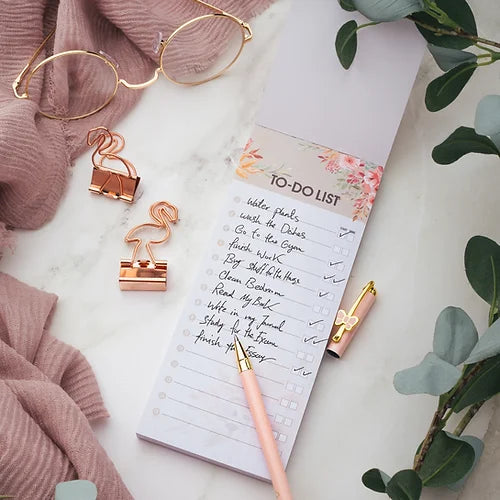 TO-DO LIST
Water plants
Wash the Dishes
Go to the Gym
finish Work
Buy stuff for the House
Clean Bedroom
Read My Book
Write in my Journal
Study for the Exam
finish the Essay